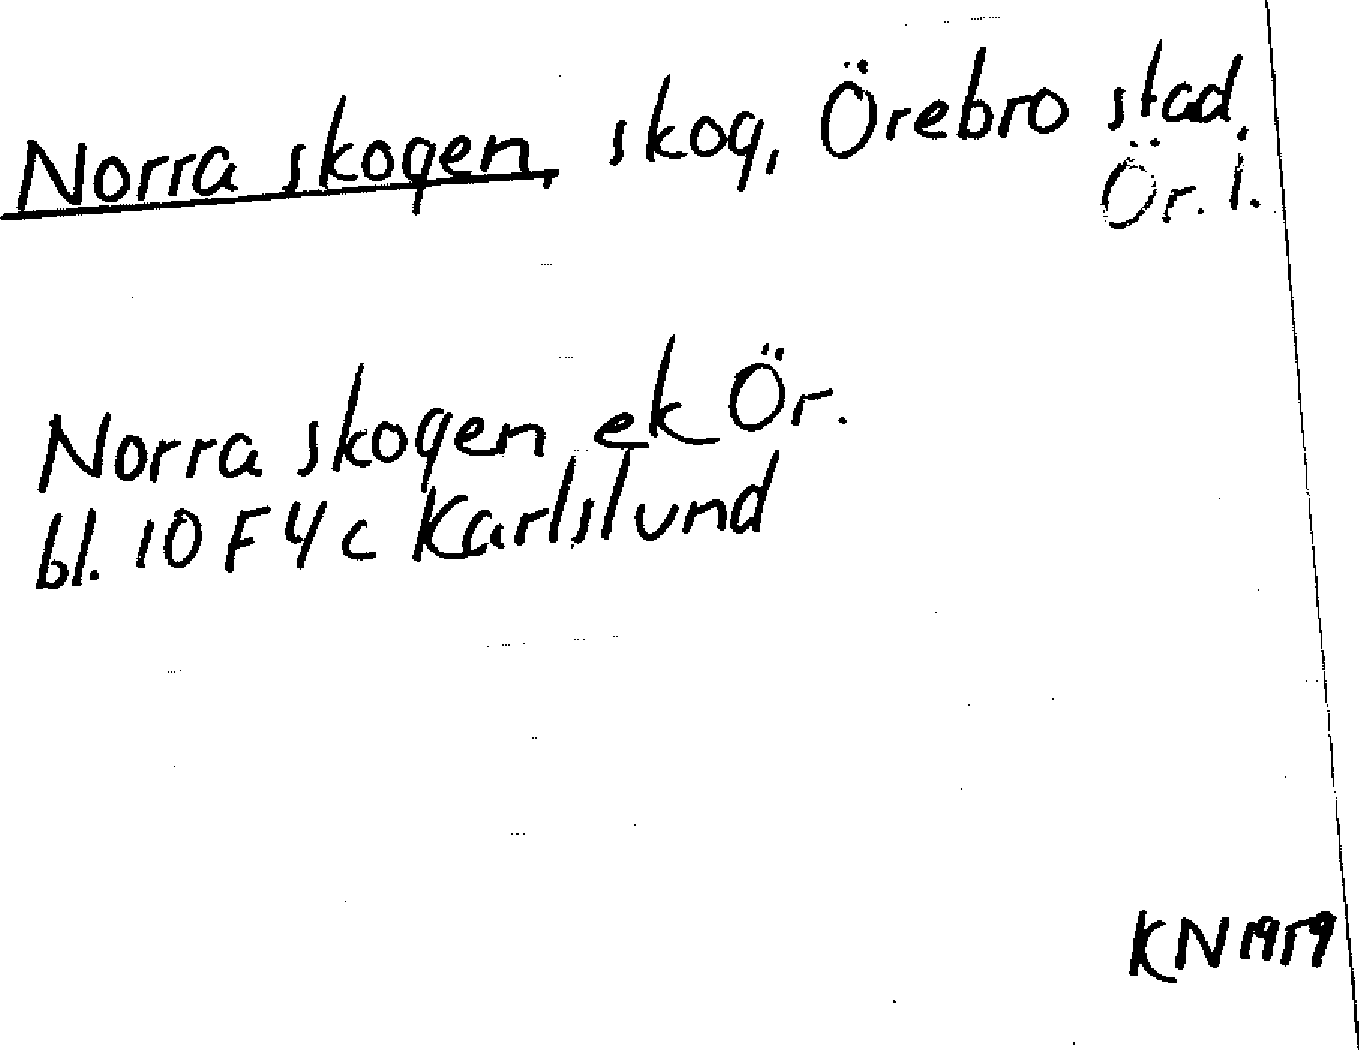 Norra skogen, skog, Örebro stad.
Ör. l.
Norra skogen ek Ör.
bl. 10 F 4 c Karlslund
KN 1959